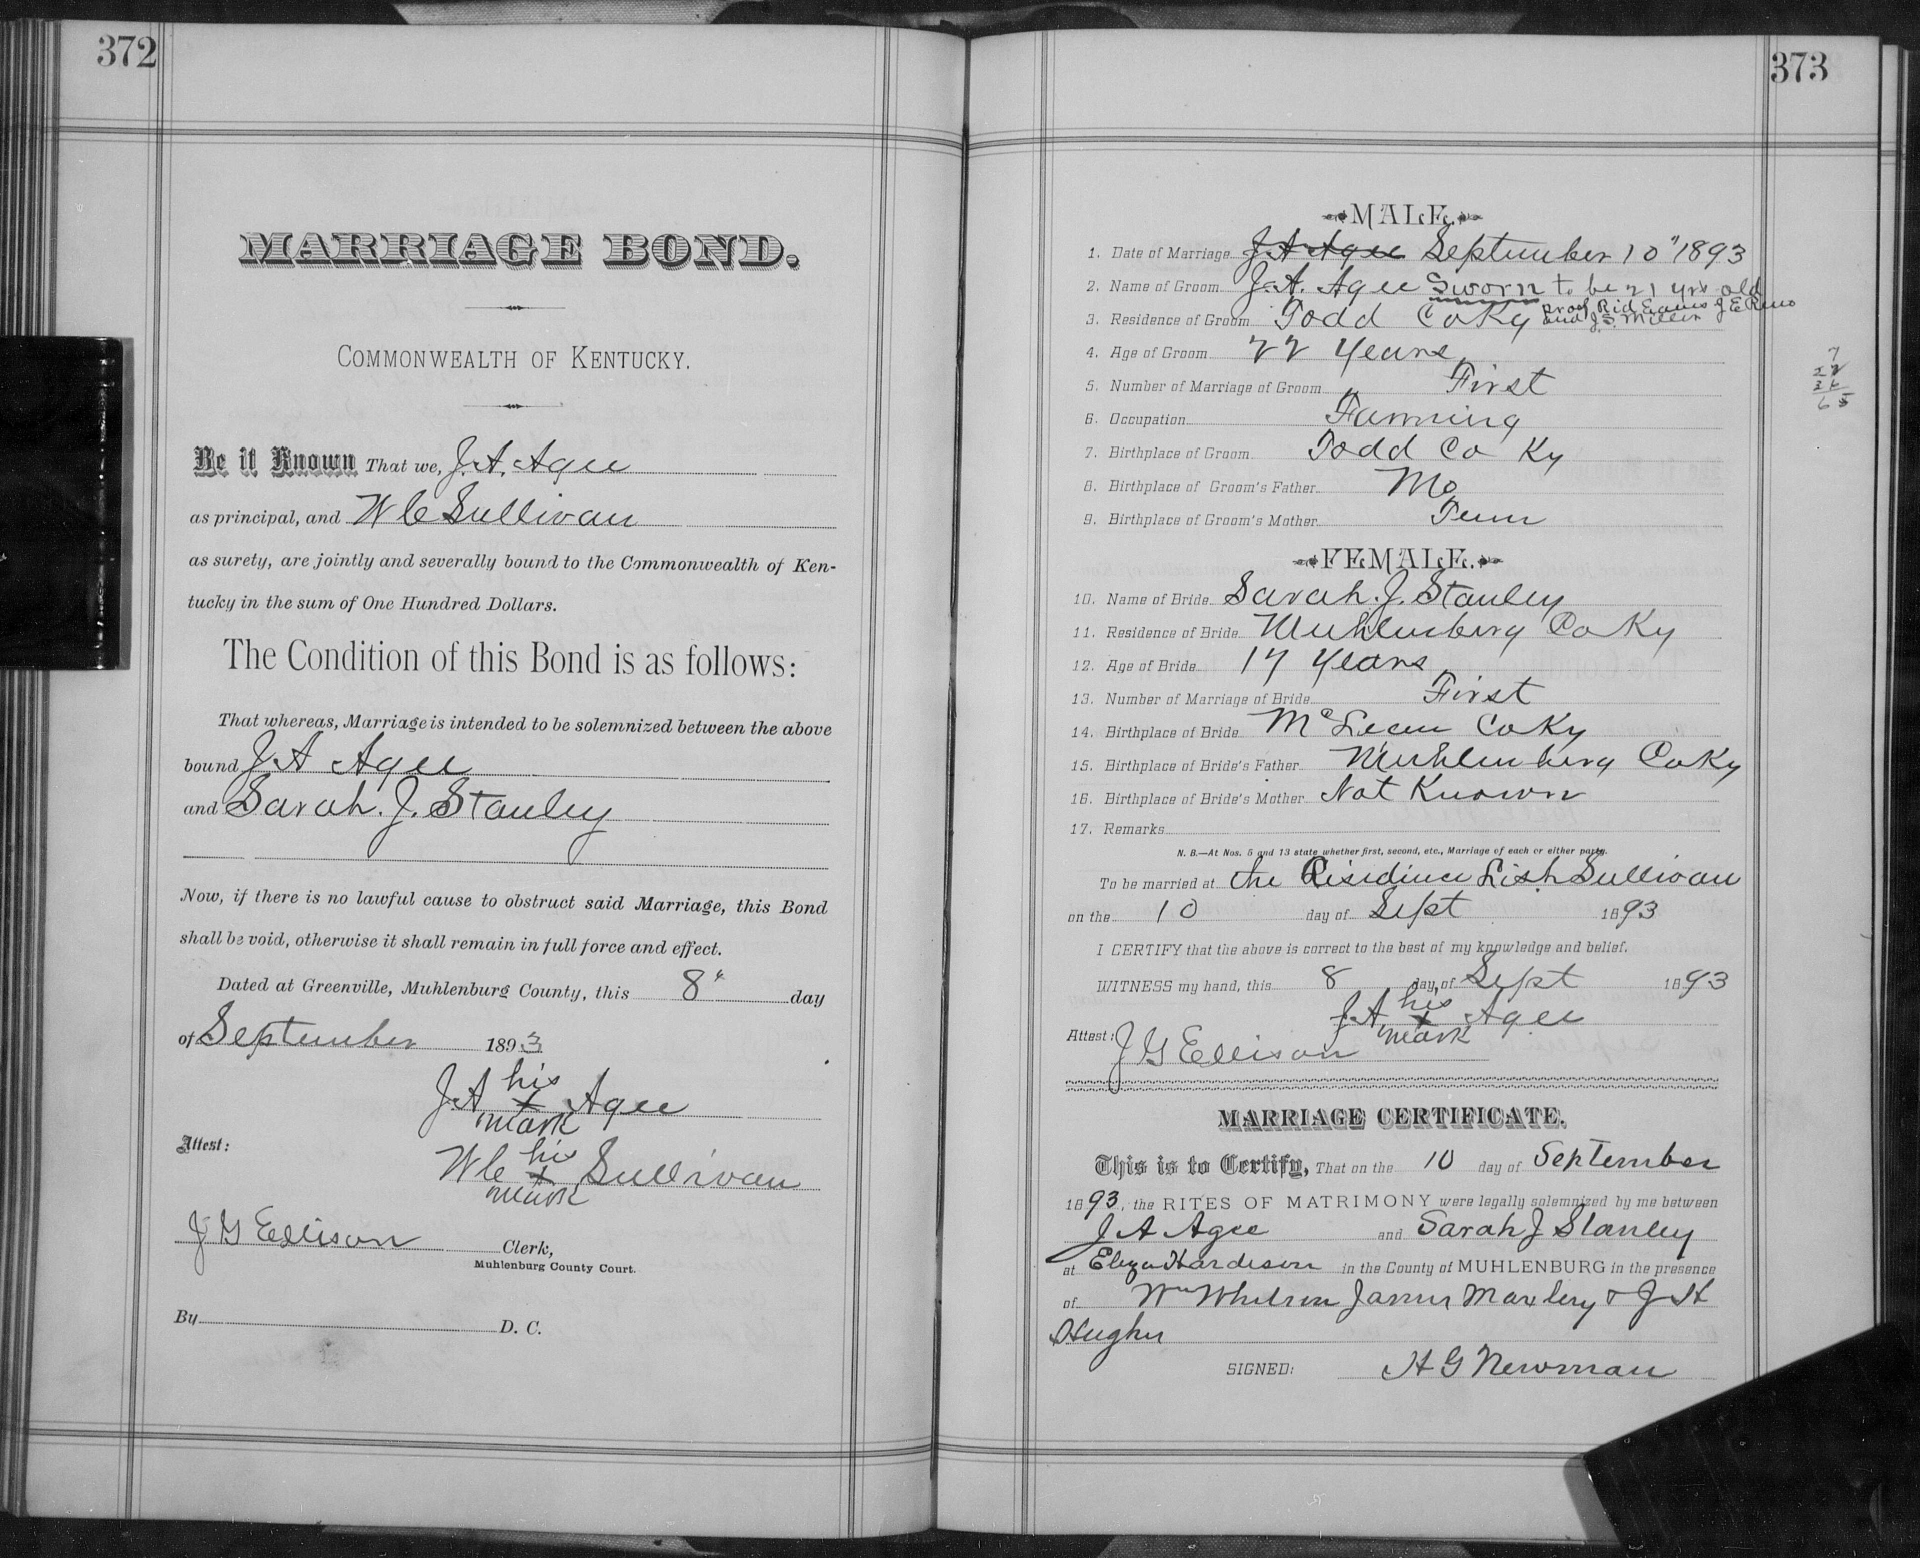 372
MARRIAGE BOND.
COMMONWEALTH OF KENTUCKY.
Be it Known That we, J. A. Agee
as principal, and W C Sullivan
as surety, are jointly and severally bound to the Commonwealth of Ken-
tucky in the sum of One Hundred Dollars.
The Condition of this Bond is as follows:
That whereas, Marriage is intended to be solemnized between the above
bound J. A Agee
and Sarah. J. Stanley
Now, if there is no lawful cause to obstruct said Marriage, this Bond
shall be void, otherwise it shall remain in full force and effect.
Dated at Greenville, Muhlenburg County, this 8" day
of September 1893
his
J. A x Agee
mark
Attest:
his
W C x Sullivan
mark
J G Ellison Clerk,
Muhlenburg County Court.
By D. C.
373
MALE.
1. Date of Marriage J. A Agee September 10" 1893
2. Name of Groom J. A. Agee Sworn to be 21 yrs old
proof Rid Eaves J E Reno
and J. S. Miller
3. Residence of Groom Todd Co Ky
4. Age of Groom 22 Years
5. Number of Marriage of Groom First
6. Occupation Farming
7. Birthplace of Groom Todd Co Ky
8. Birthplace of Groom's Father Mo
9. Birthplace of Groom's Mother Tenn
FEMALE.
10. Name of Bride Sarah. J. Stanley
11. Residence of Bride Muhlenberg Co Ky
12. Age of Bride 17 Years
13. Number of Marriage of Bride First
14. Birthplace of Bride McLean Co Ky
15. Birthplace of Bride's Father Muhlenberg Co Ky
16. Birthplace of Bride's Mother Not Known
17. Remarks
N. B.—At Nos. 5 and 13 state whether first, second, etc., Marriage of each or either party.
To be married at the Risidince Lish Sullivan
on the 10 day of Sept 1893
I CERTIFY that the above is correct to the best of my knowledge and belief.
WITNESS my hand, this 8 day of Sept 1893
his
J. A x Agee
mark
Attest: J G Ellison
MARRIAGE CERTIFICATE.
This is to Certify, That on the 10 day of September
1893, the RITES OF MATRIMONY were legally solemnized by me between
J A Agee and Sarah J Stanley
at Hardison in the County of MUHLENBURG in the presence
of Wm Whelson James Maxley & J H
Hughes
SIGNED: H G Newman